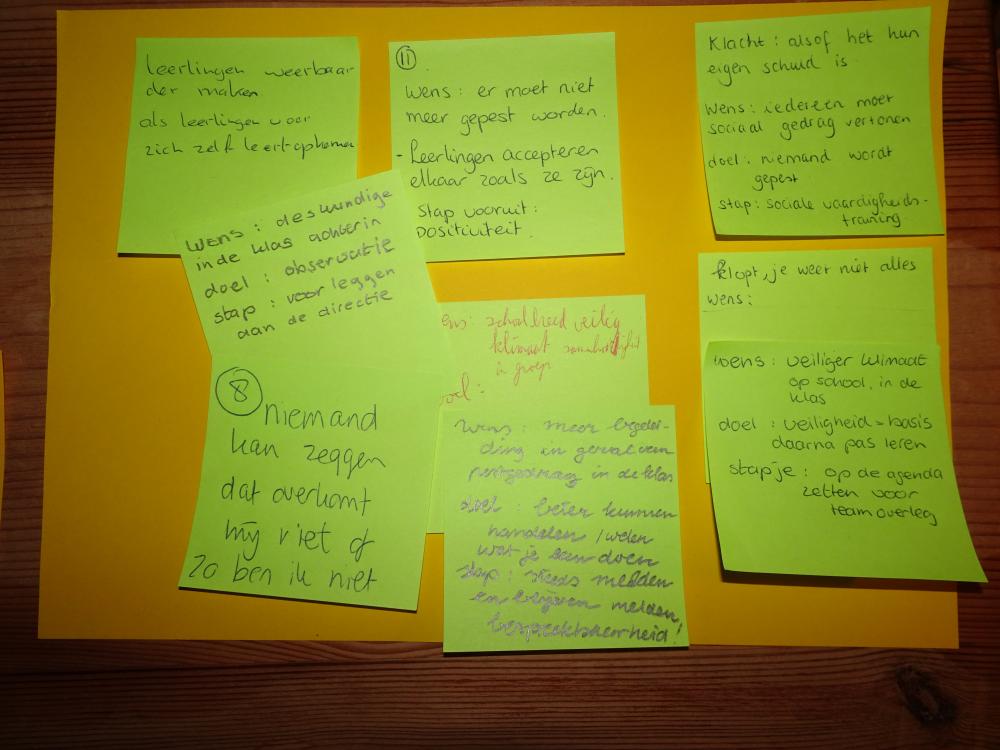 leerlingen weerbaar
der maken.
als leerlingen voor
zich zelf leert opkomen
11
wens: er moet niet
meer gepest worden.
- Leerlingen accepteren
elkaar zoals ze zijn.
Stap vooruit:
positiviteit.
Klacht: alsof het hun
eigen schuld is.
wens: iedereen moet
sociaal gedrag vertonen
doel: niemand wordt
gepest
stap: sociale vaardigheids-
training.
wens: deskundige
in de klas achterin
doel: observatie
stap: voorleggen
aan de directie
8
niemand
kan zeggen
dat overkomt
mij niet of
zo ben ik niet
ens: schoolbreed veilig
klimaat
in groep
oel:
wens: meer begelei-
ding in geval van
pestgedrag in de klas
doel: beter kunnen
handelen / weten
wat je kan doen
stap: steeds melden
en blijven melden!
bespreekbaarheid!
Klopt, je weet niet alles
wens:
wens: veiliger klimaat
op school, in de
klas
doel: veiligheid = basis
daarna pas leren
stapje: op de agenda
zetten voor
team overleg